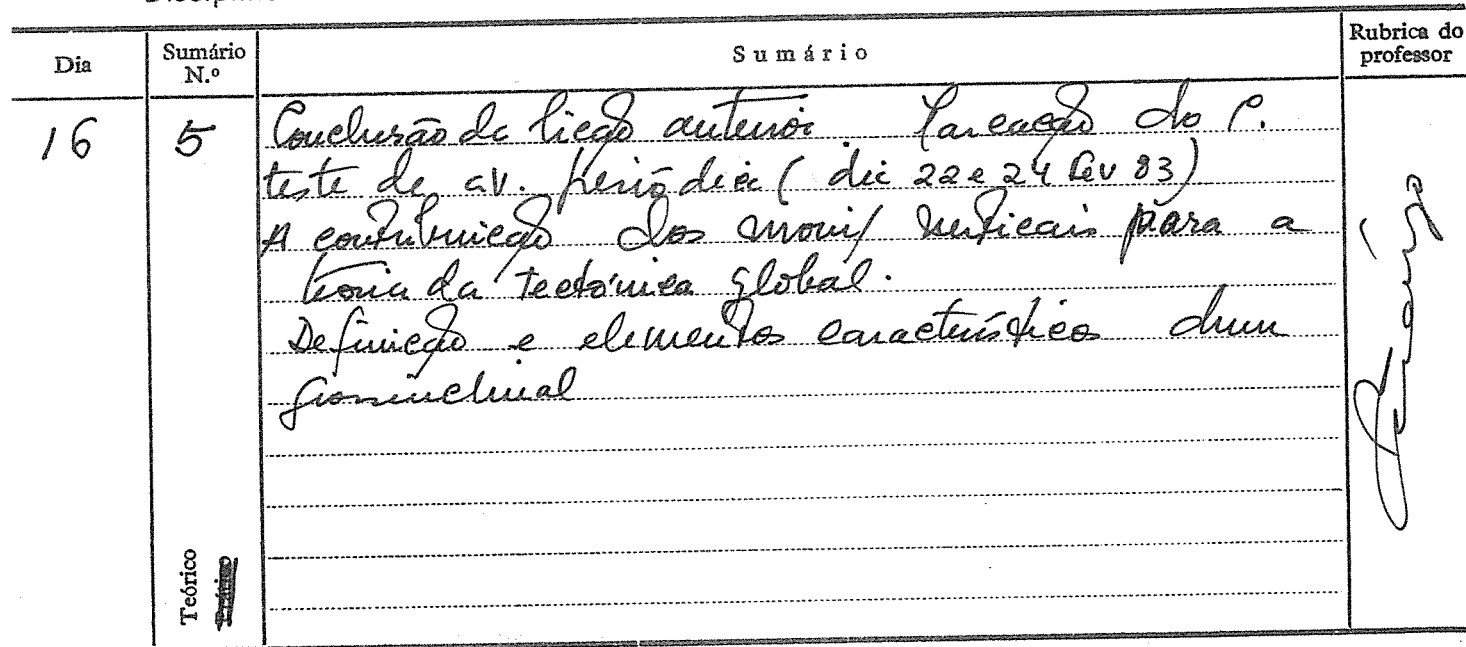 Dia
Sumário N.º
Sumário
Rubrica do professor
16
5
Conclusão da lição anterior. Marcação do 1.
teste de av. periódica (dia 22 e 24 Fev 83)
A contribuição dos movi/ verticais para a
teoria da Tectónica Global.
Definição e elementos característicos dum
geossinclinal
Teórico
Prático